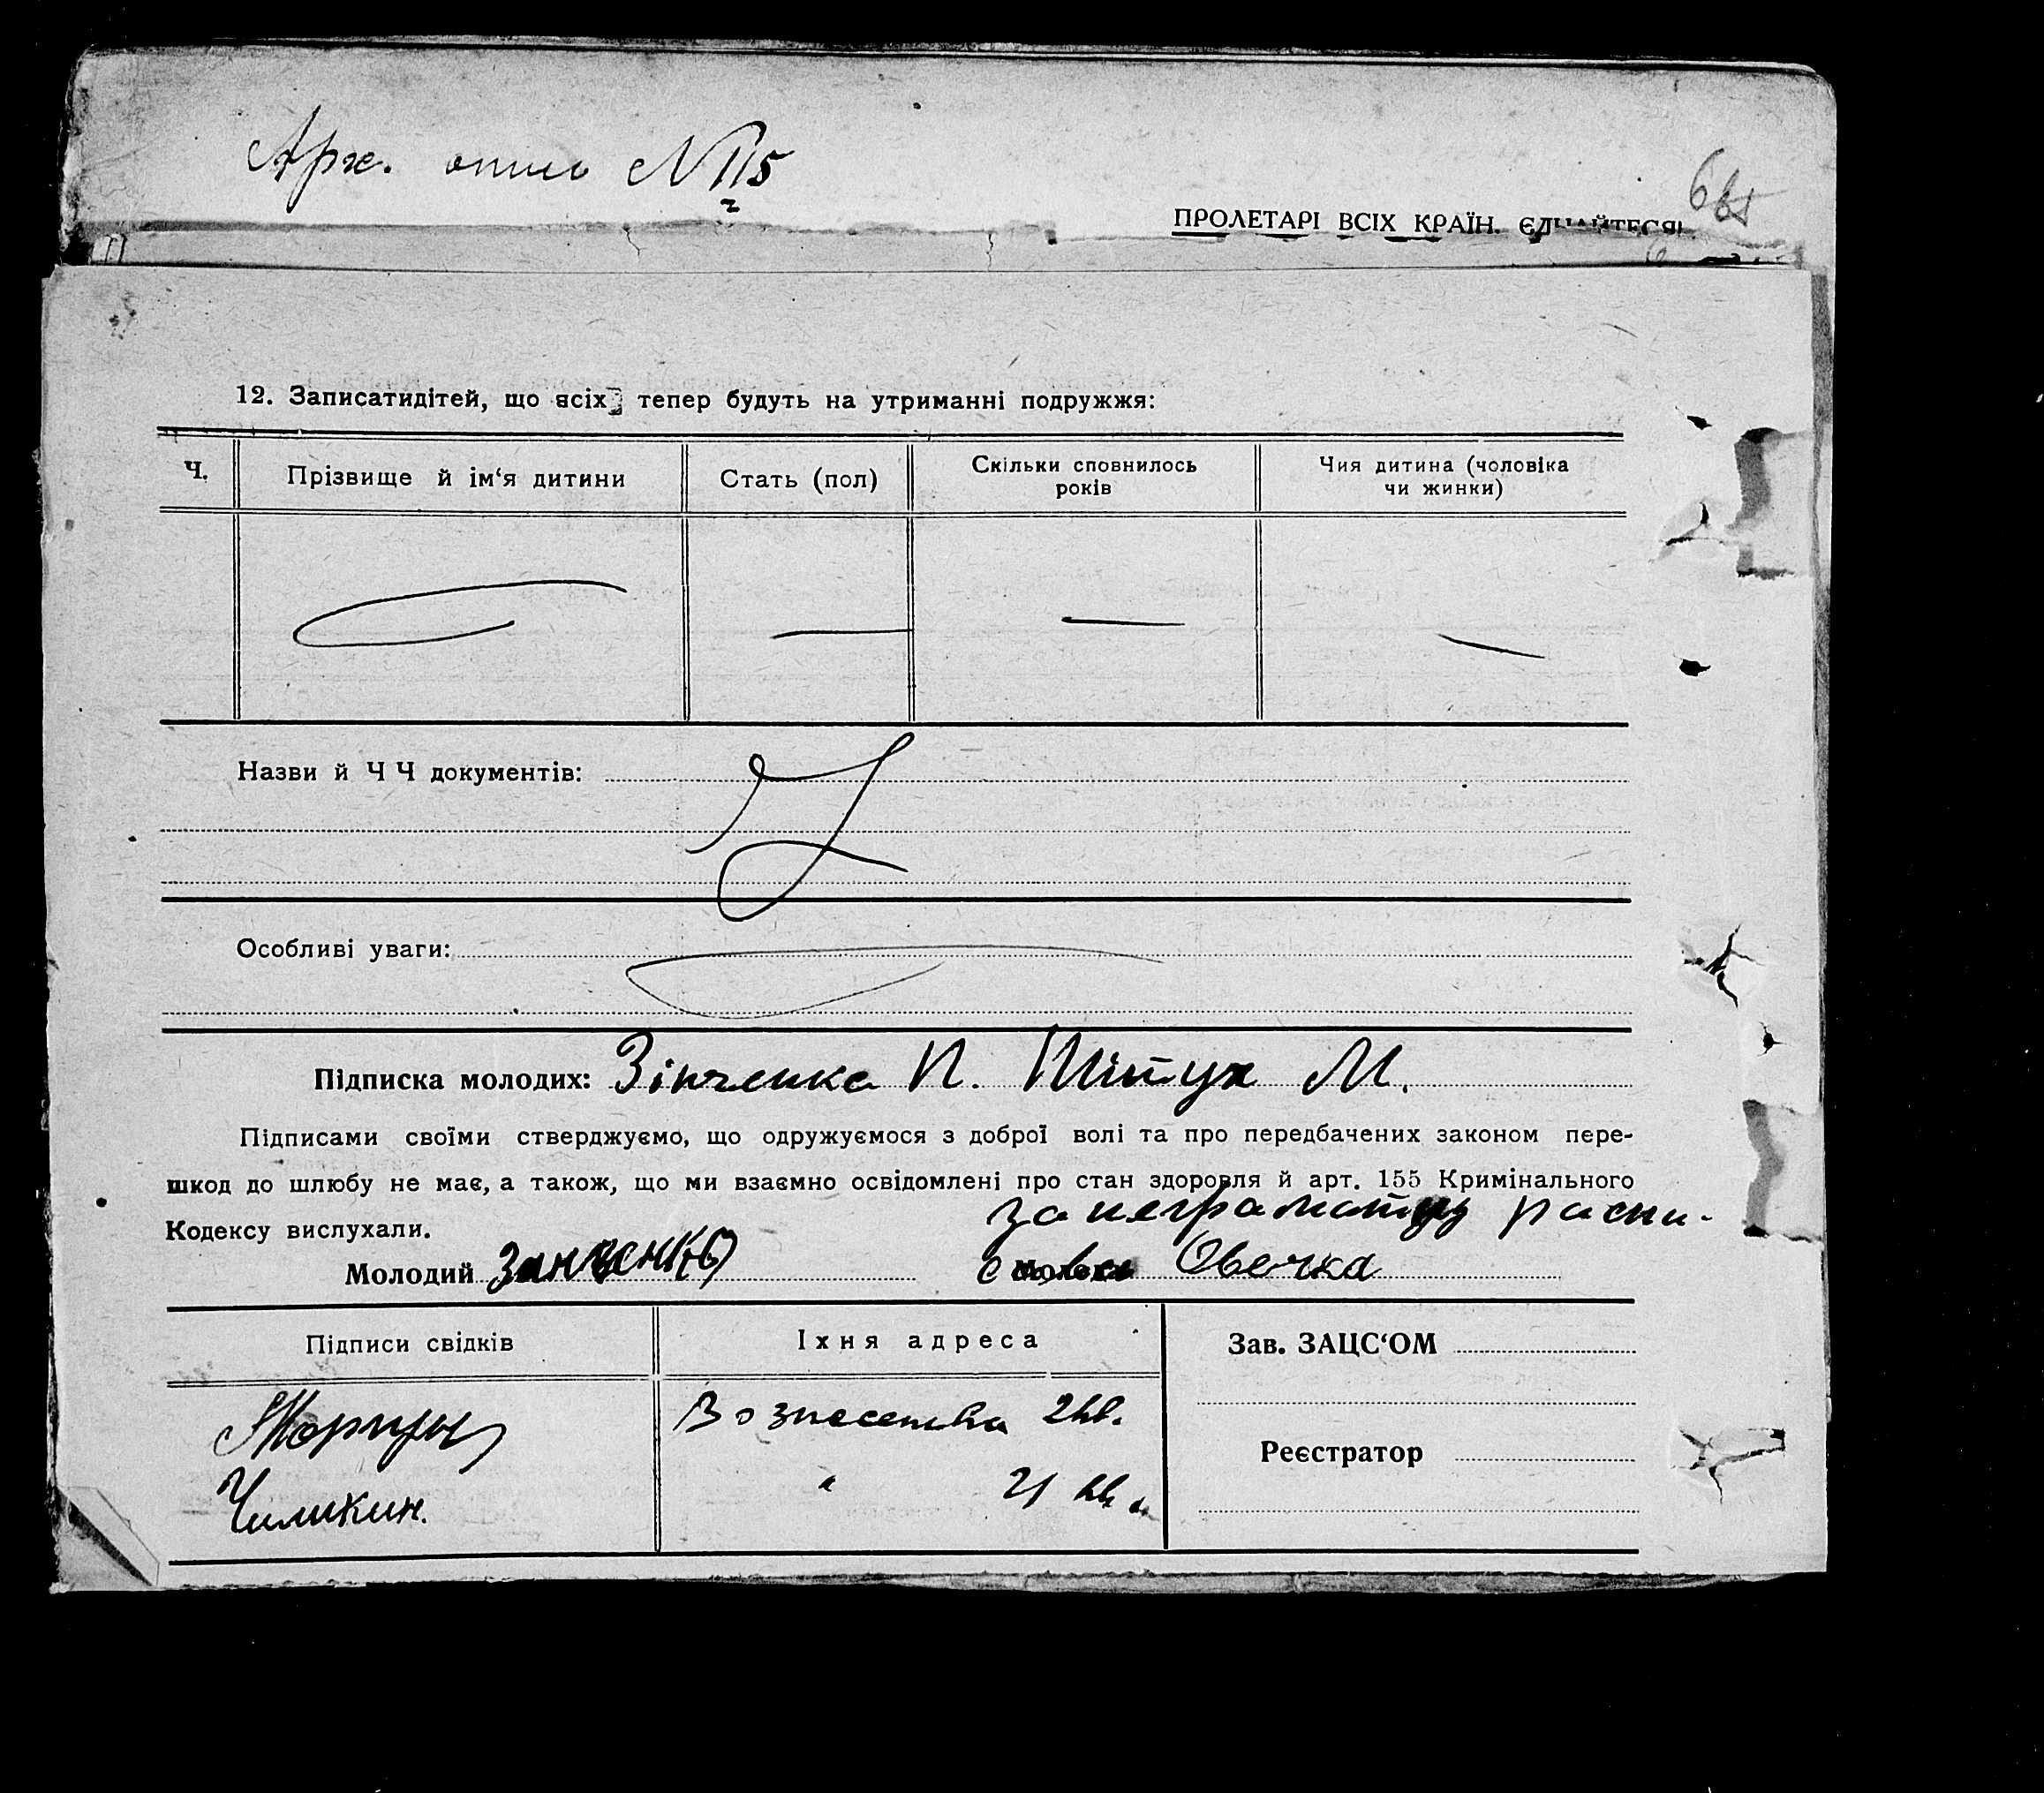 Арх. опис N 115
2
ПРОЛЕТАРІ ВСІХ КРАЇН, ЄДНАЙТЕСЯ!
12. Записатидітей, що всіх тепер будуть на утриманні подружжя:
Ч. Прізвище й ім‘я дитини Стать (пол) Скільки сповнилось років Чия дитина (чоловіка чи жинки)
— — —
Назви й Ч Ч документів:
Особливі уваги:
Підписка молодих: Зінченка П. Пітух М.
Підписами своїми стверджуємо, що одружуємося з доброї волі та про передбачених законом пере-
шкод до шлюбу не має, а також, що ми взаємно освідомлені про стан здоровля й арт. 155 Кримінального
Кодексу вислухали.
за неграмотну распи-
Молодий Овечка
Підписи свідків Їхня адреса Зав. ЗАЦС‘ОМ
Вознесенка 2 кв.
Реєстратор
Чимкин. " 21 кв.